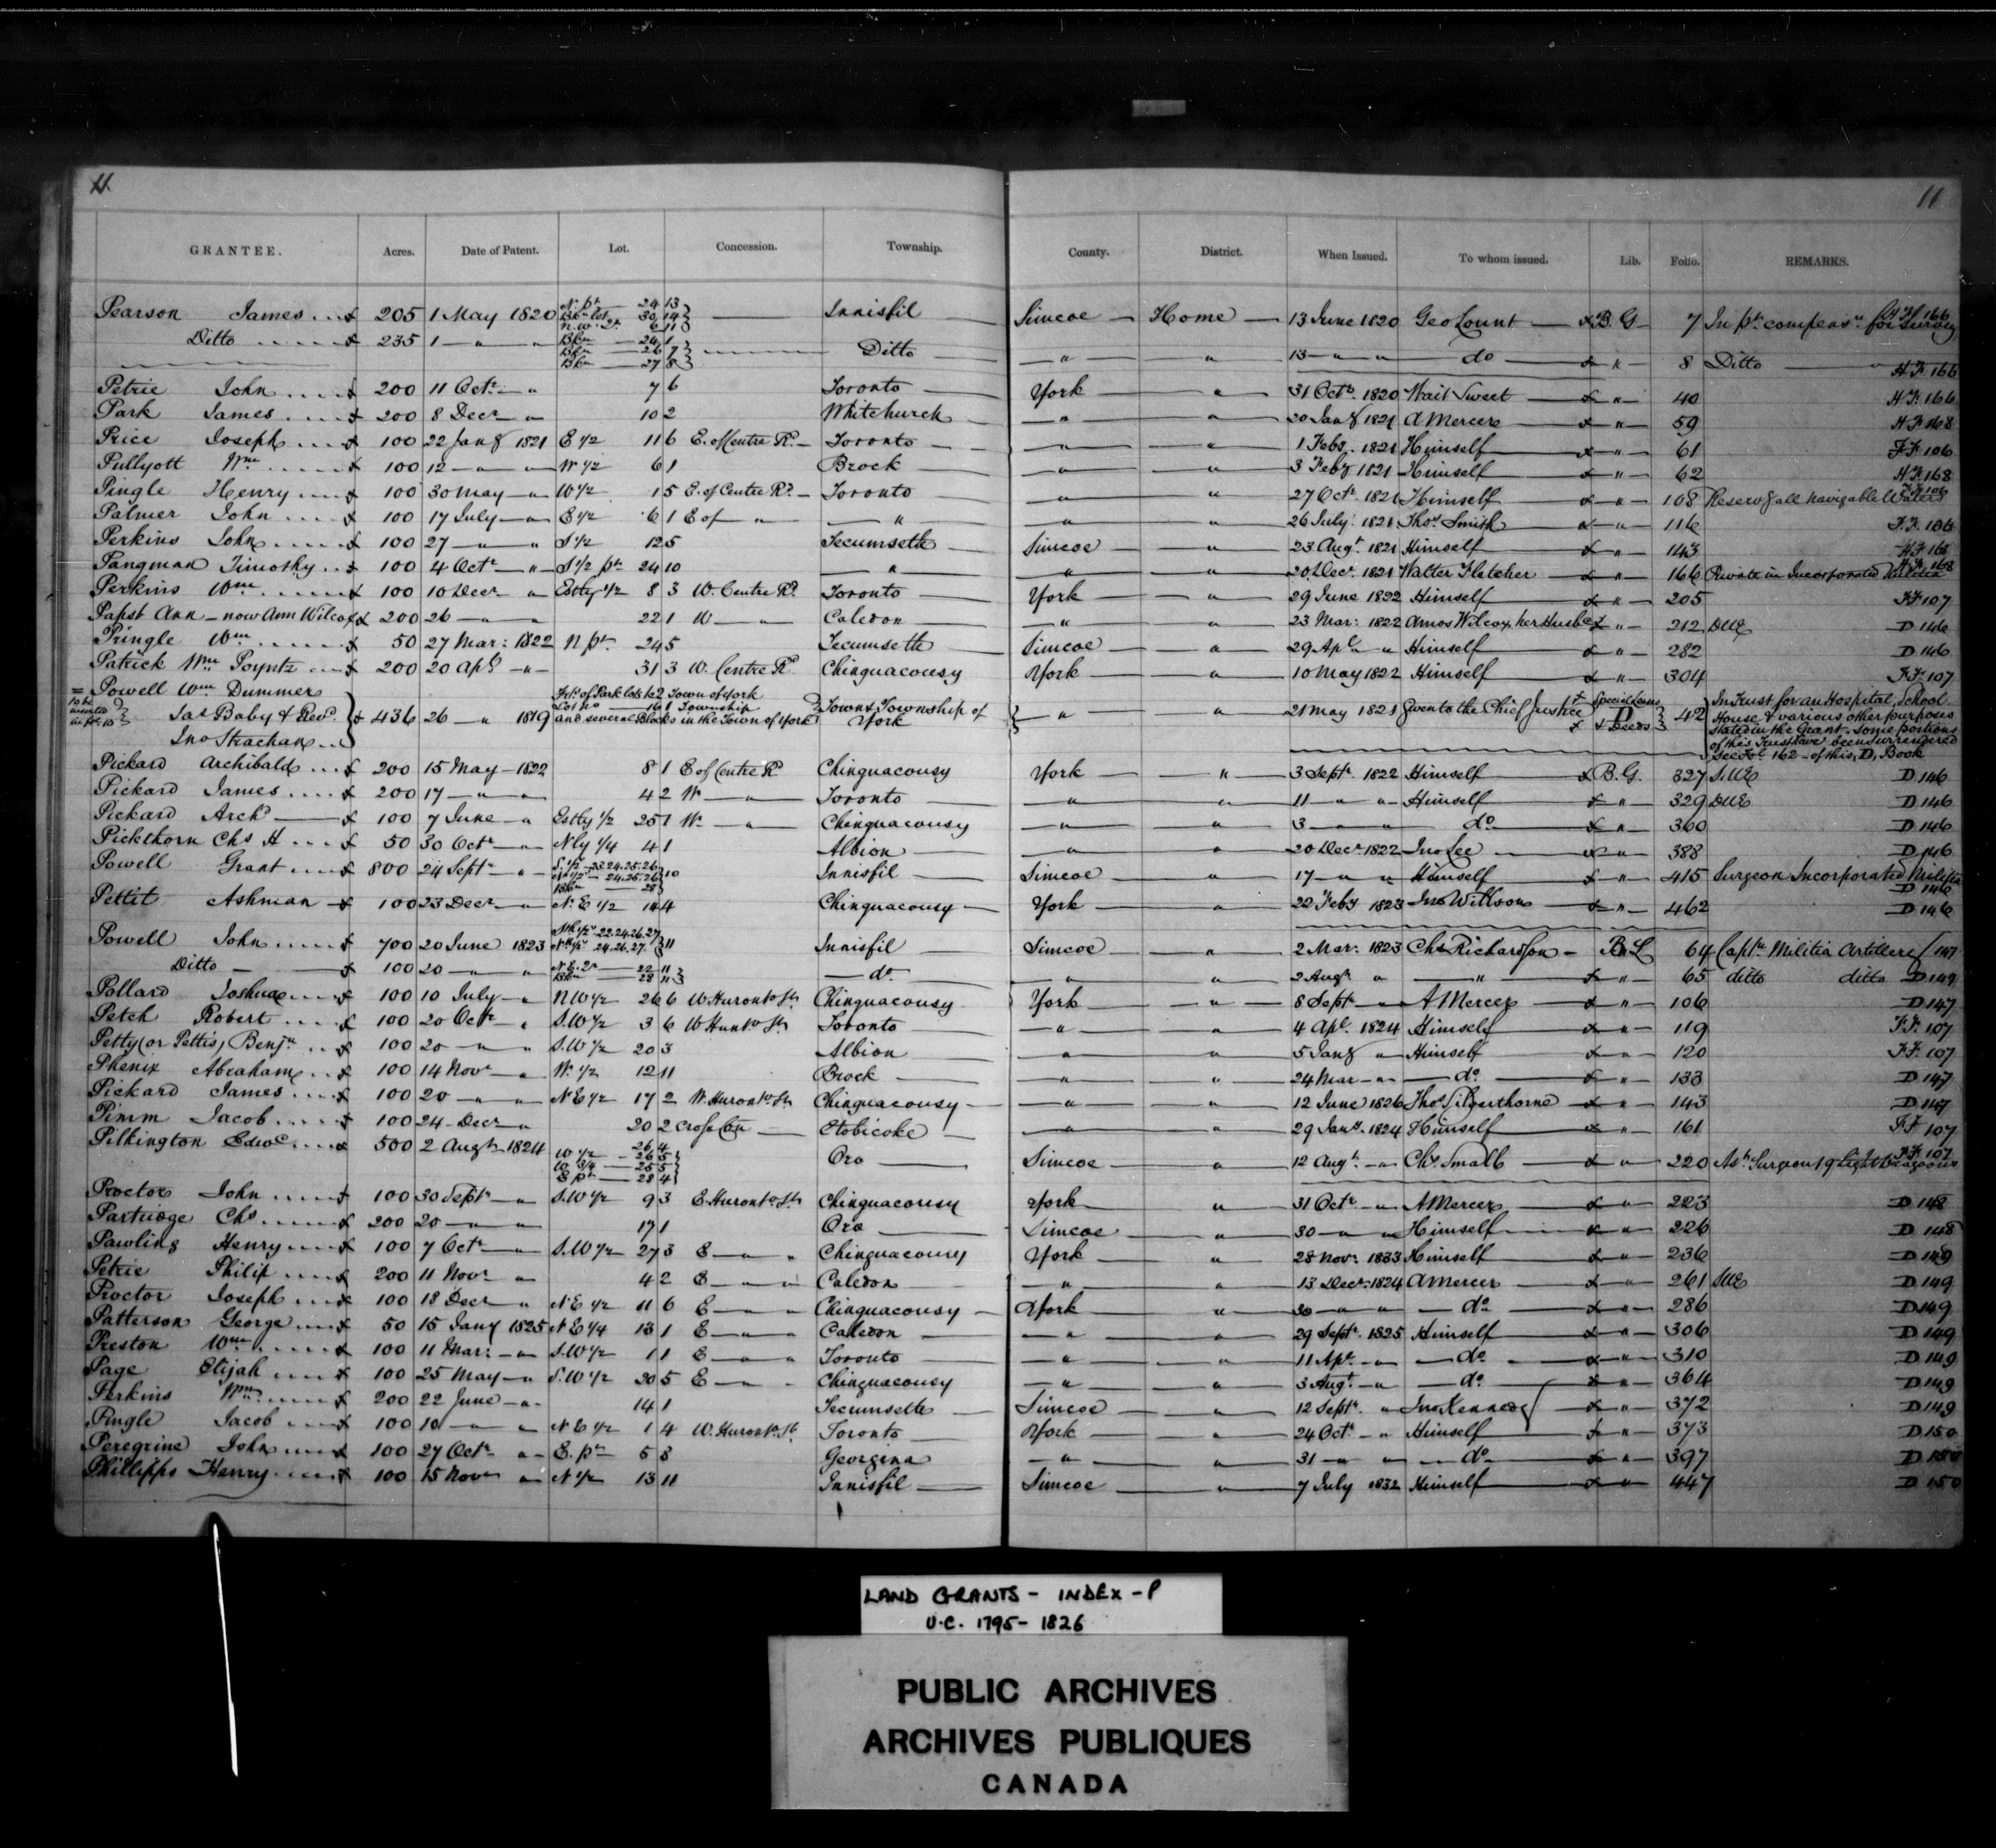 11
11
GRANTEE. Acres. Date of Patent. Lot. Concession. Township. County. District. When Issued. To whom issued. Lib. Folio. REMARKS.
Pearson James 205 1 May 1820 N. pt 24 13 Bkn lot 30 14 N.W. 6 11 Innisfil Simcoe Home 13 June 1820 Geo Lount B.G. 7 In pt compensn for Survey 166
Ditto 235 1 " " Bkn 24 1 Bkn 26 7 Bkn 27 8 Ditto " " 13 " " do " 8 Ditto H.F. 166
Petrie John 200 11 Octr " 7 6 Toronto York " 31 Octr 1820 Wait Sweet " 40 H.F. 166
Park James 200 8 Decr " 10 2 Whitchurch " " 20 Jany 1821 A Mercer " 59 H.F. 168
Price Joseph 100 22 Jany 1821 E 1/2 11 6 E. of Centre Rd Toronto " " 1 Feby 1821 Himself " 61 F.F. 106
Pullyott Wm 100 12 " " W 1/2 6 1 Brock " " 3 Feby 1821 Himself " 62 H.F. 168
Pingle Henry 100 30 May " W 1/2 1 5 E. of Centre Rd Toronto " " 27 Octr 1821 Himself " 108 Reserv g all navigable Waters F.F. 106
Palmer John 100 17 July " E 1/2 6 1 E of " " " " 26 July 1821 Thos Smith " 116 F.F. 106
Perkins John 100 27 " " S 1/2 12 5 Tecumseth Simcoe " 23 Augt 1821 Himself " 143 H.F. 168
Pangman Timothy 100 4 Octr " S 1/2 pt 24 10 " " " 20 Decr 1821 Walter Fletcher " 166 Private in Incorporated Militia H.F. 168
Perkins Wm 100 10 Decr " Estly 1/2 8 3 W. Centre Rd Toronto York " 29 June 1822 Himself " 205 F.F. 107
Papst Ann - now Ann Wilcox 200 26 " " 22 1 W " Caledon " " 23 Mar: 1822 Amos Wilcox her Husbd " 212 DUE D 146
Pringle Wm 50 27 Mar: 1822 N pt 24 5 Tecumseth Simcoe " 29 Apl " Himself " 282 D 146
Patrick Wm Poyntz 200 20 Apl " 31 3 W. Centre Rd Chinguacousy York " 10 May 1822 Himself " 304 F.F. 107
Powell Wm Dummer
to be inserted in fol. 10 Jas Baby & Revd 436 26 " 1819 Frt of Park lots 1 & 2 Town of York Lot No 16 1 Township and several Blocks in the Town of York Town & Township of York " " 21 May 1821 Given to the Chief Justice Special Leases D & Deeds 42 In Trust for an Hospital, School House & various other purposes
Jno Strachan stated in the Grant - Some portions of this Trust have been surrendered See Fol. 162 - of this, D, Book
Pickard Archibald 200 15 May 1822 8 1 E of Centre Rd Chinguacousy York " 3 Septr 1822 Himself B.G. 327 S.UE D 146
Pickard James 200 17 " " 4 2 W " Toronto " " 11 " " Himself " 329 DUE D 146
Pickard Archd 100 7 June " Estly 1/2 25 1 W " Chinguacousy " " 3 " " do " 360 D 146
Pickthorn Chs H 50 30 Octr " Nly 1/4 4 1 Albion " " 20 Decr 1822 Jno Lee " 388 D 146
Powell Grant 800 24 Septr " S 1/2 23.24.25.26 N 1/2 24.25.26 Bkn 28 10 Innisfil Simcoe " 17 " " Himself " 415 Surgeon Incorporated Militia D 146
Pettit Ashman 100 23 Decr " N.E 1/2 14 4 Chinguacousy York " 22 Feby 1823 Jno Willson " 462 D 146
Powell John 700 20 June 1823 Sth 1/2 22.24.26.27 Nth 1/2 24.26.27. 11 Innisfil Simcoe " 2 Mar: 1823 Chs Richardson B.L 64 Captn Militia Artillery 147
Ditto 100 20 " " N.E. 22 11 Bkn 28 11 do " " 2 Augt " " " 65 ditto ditto D 149
Pollard Joshua 100 10 July " N W 1/2 26 6 W Huronto St Chinguacousy York " 8 Septr " A Mercer " 106 D 147
Petch Robert 100 20 Octr " S.W 1/2 3 6 W Huronto St Toronto " " 4 Apl. 1824 Himself " 119 F.F. 107
Petty (or Pettis) Benjn 100 20 " " S.W 1/2 20 3 Albion " " 5 Jany " Himself " 120 F.F. 107
Phenix Abraham 100 14 Novr " W. 1/2 12 11 Brock " " 24 Mar " do " 133 D 147
Pickard James 100 20 " " N.E 1/2 17 2 W. Huronto St Chinguacousy " " 12 June 1826 Thos Silverthorne " 143 D 147
Pimm Jacob 100 24 Decr " 20 2 Cross Con Etobicoke " " 29 Jany 1824 Himself " 161 F.F 107
Pilkington Edwd 500 2 Augt 1824 26 4 W 1/2 26 5 W. 3/4 25 5 E pt 28 4 Oro Simcoe " 12 Augt " Chs Small " 220 Ast Surgeon 19 Light Dragoons F.F. 107
Proctor John 100 30 Septr " S.W 1/2 9 3 E. Huronto St Chinguacousy York " 31 Octr " A Mercer " 223 D 148
Partridge Chs 200 20 " " 17 1 Oro Simcoe " 30 " " Himself " 226 D 148
Pawling Henry 100 7 Octr " S.W 1/2 27 3 E " " Chinguacousy York " 28 Novr 1833 Himself " 236 D 149
Petrie Philip 200 11 Novr " 4 2 E " " Caledon " " 13 Decr 1824 A Mercer " 261 SUE D 149
Proctor Joseph 100 18 Decr " N.E 1/2 11 6 E " " Chinguacousy York " 30 " " do " 286 D 149
Patterson George 50 15 Jany 1825 N.E 1/4 13 1 E " " Caledon " " 29 Septr 1825 Himself " 306 D 149
Preston Wm 100 11 Mar: " S.W 1/2 1 1 E " " Toronto " " 11 Apl " do " 310 D 149
Page Elijah 100 25 May " S.W 1/2 30 5 E " " Chinguacousy " " 3 Augt " do " 364 D 149
Perkins Wm 200 22 June " 14 1 Tecumseth Simcoe " 12 Septr " Jno Kennedy " 372 D 149
Pingle Jacob 100 10 " " N E 1/2 1 4 W. Huronto St Toronto York " 24 Octr " Himself " 373 D 150
Peregrine John 100 27 Octr " E. pt 5 8 Georgina " " 31 " " do " 397 D 150
Phillipps Henry 100 15 Novr " N 1/2 13 11 Innisfil Simcoe " 7 July 1832 Himself " 447 D 150
LAND GRANTS - INDEX - P
U.C. 1795 - 1826
PUBLIC ARCHIVES
ARCHIVES PUBLIQUES
CANADA